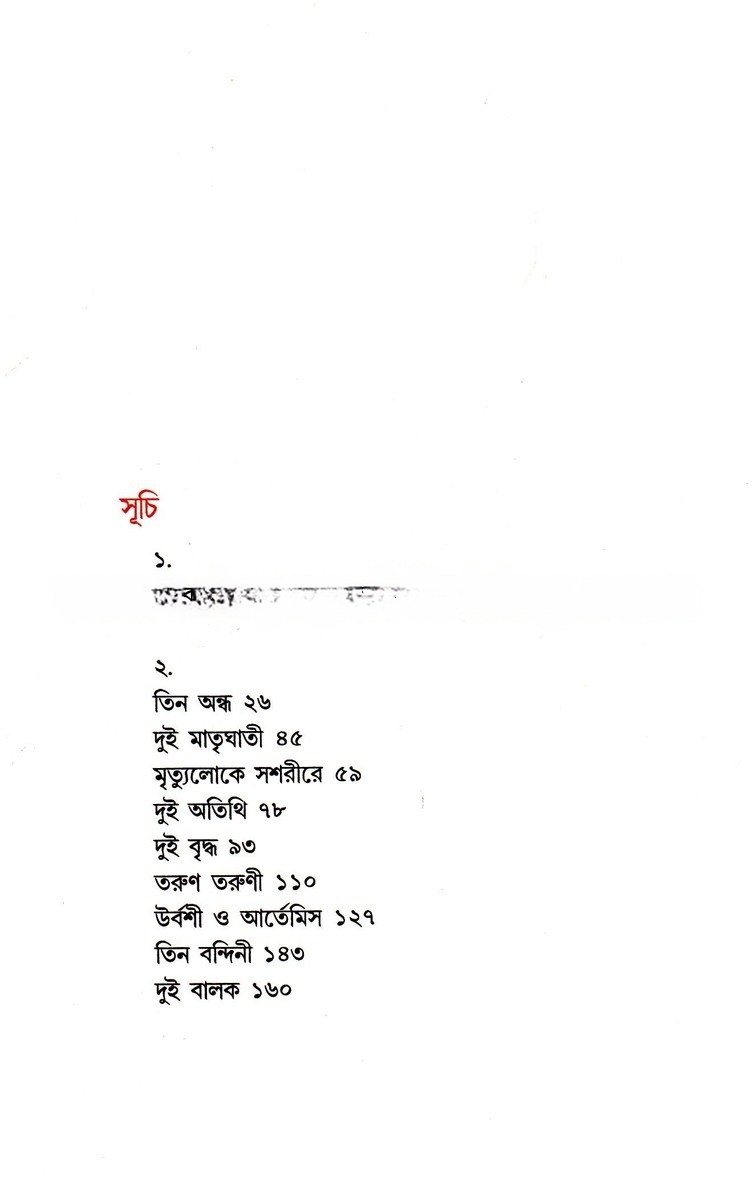 সূচি
১.
২.
তিন অন্ধ ২৬
দুই মাতৃঘাতী ৪৫
মৃত্যুলোকে সশরীরে ৫৯
দুই অতিথি ৭৮
দুই বৃদ্ধ ৯৩
তরুণ তরুণী ১১০
উর্বশী ও আর্তেমিস ১২৭
তিন বন্দিনী ১৪৩
দুই বালক ১৬০